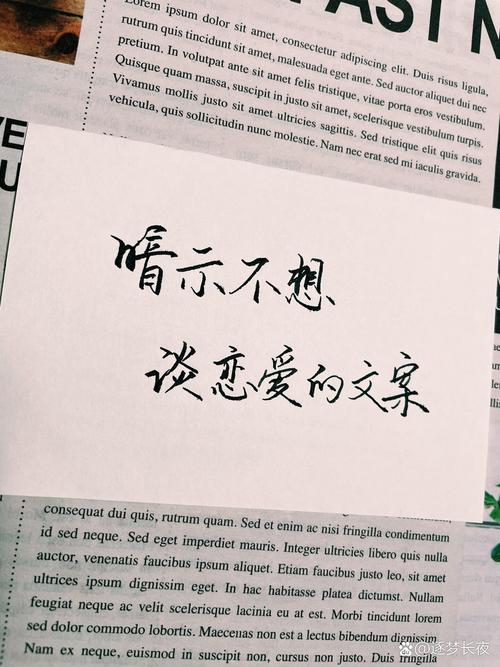 Lorem ipsum dolor sit amet, consectetur adipiscing elit. Duis risus ligula,
rutrum quis tincidunt sit amet, malesuada eget ante. Sed auctor aliquet dui nec
pretium. In volutpat ante sit amet felis tristique, vitae porta eros vestibulum.
Quisque quam massa, suscipit in justo sit amet, scelerisque vestibulum turpis.
Vivamus mollis justo sit amet ultricies sagittis. Sed tristique elit quis risus
vehicula, quis sollicitudin nunc molestie. Nam nec erat sed mi iaculis gravida.
暗示不想
谈恋爱的文案
consequat dui quis, rutrum quam. Sed et enim ac nisi fringilla condimentum
id sed neque. Sed eget imperdiet mauris. Integer ultricies libero quis nulla
auctor, venenatis faucibus ipsum aliquet. Etiam faucibus justo leo, sit amet
ultrices ipsum dignissim eget. In hac habitasse platea dictumst. Nullam
feugiat neque ac velit scelerisque lacinia eu at est. Morbi tincidunt lorem
sed dolor commodo lobortis. Maecenas non est a lectus bibendum dignissim.
Nam ex neque, euismod in suscipit non, cursus non justo. Duis fringilla
@逐梦长夜